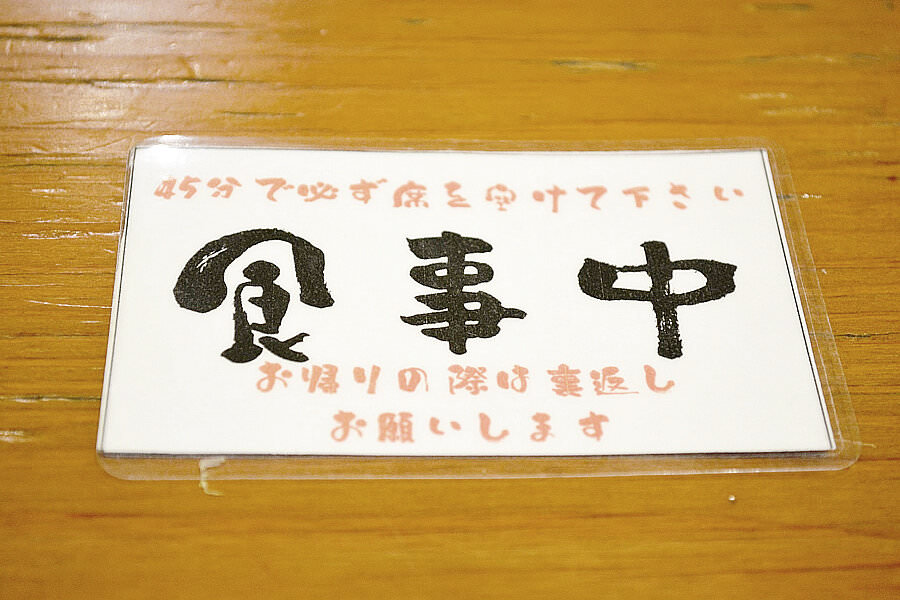 45分で必ず席を空けて下さい
食事中
お帰りの際は裏返し
お願いします